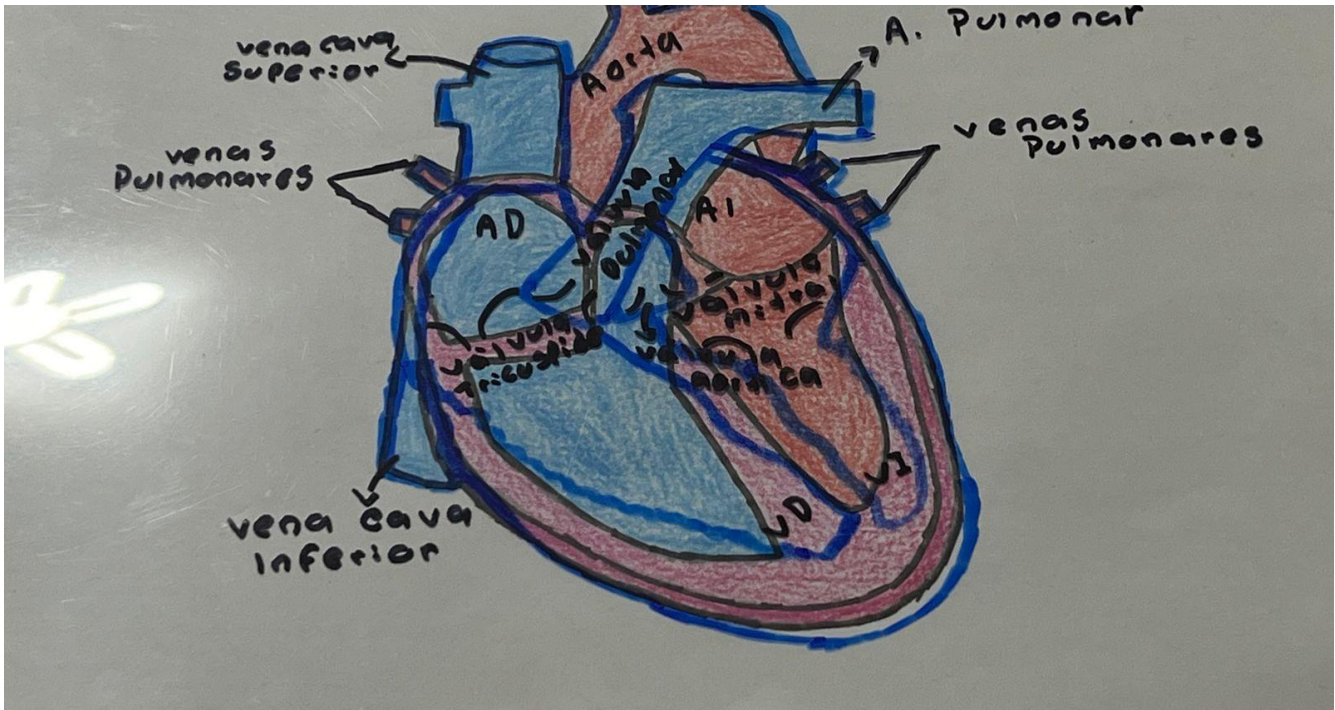 vena cava
superior
Aorta
A. Pulmonar
venas
Pulmonares
venas
Pulmonares
AD
válvula
pulmonar
AI
válvula
mitral
válvula
tricuspide
válvula
aórtica
VI
VD
vena cava
inferior